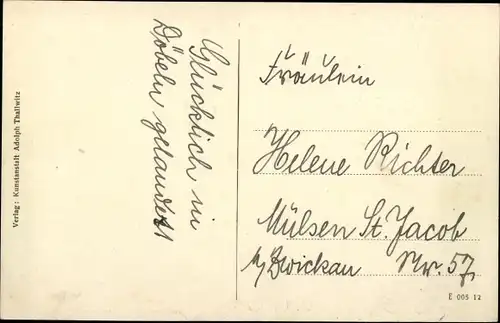 Glücklich in
Döbeln gelandet
Fräulein
Helene Richter
Mülsen St. Jacob
b/Zwickau Nr. 57.
Verlag: Kunstanstalt Adolph Thallwitz
E 005 12